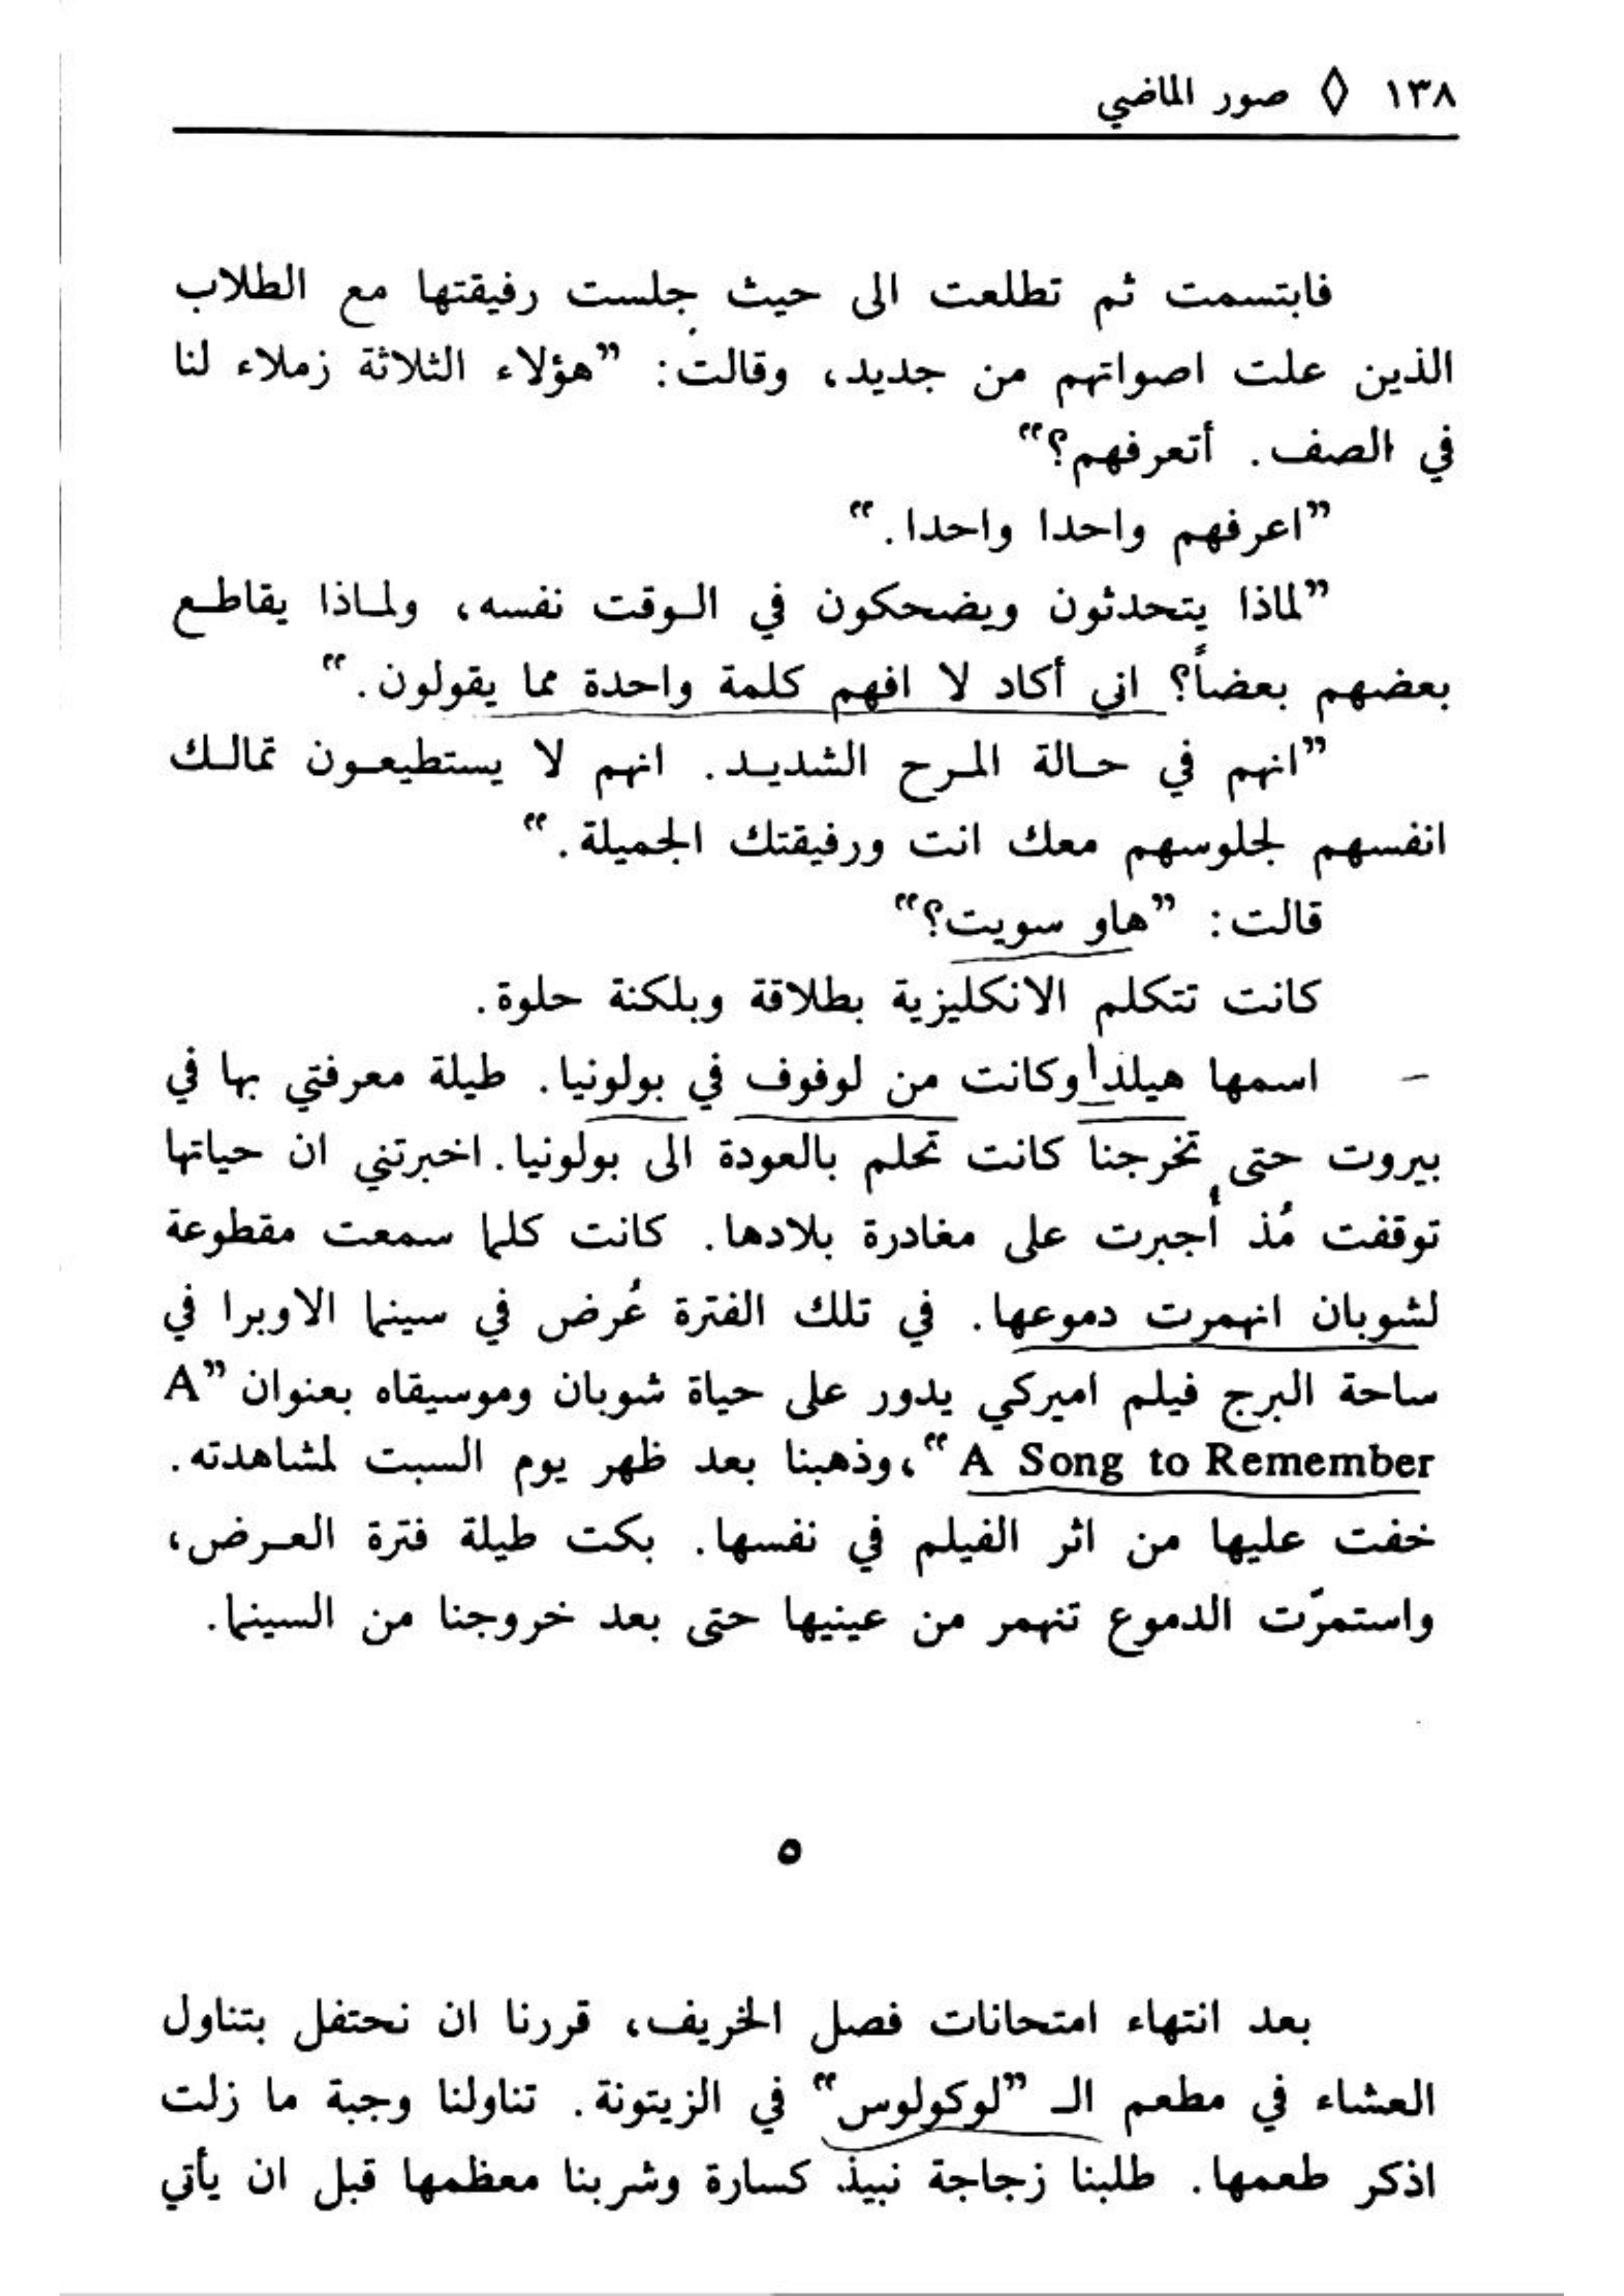 ١٣٨ ◊ صور الماضي
فابتسمت ثم تطلعت الى حيث جلست رفيقتها مع الطلاب
الذين علت اصواتهم من جديد، وقالت: ”هؤلاء الثلاثة زملاء لنا
في الصف. أتعرفهم؟“
”اعرفهم واحدا واحدا.“
”لماذا يتحدثون ويضحكون في الـوقت نفسه، ولمـاذا يقاطـع
بعضهم بعضاً؟ اني أكاد لا افهم كلمة واحدة مما يقولون.“
”انهم في حـالة المـرح الشديـد. انهم لا يستطيعـون تمالـك
انفسهم لجلوسهم معك انت ورفيقتك الجميلة.“
قالت: ”هاو سويت؟“
كانت تتكلم الانكليزية بطلاقة وبلكنة حلوة.
– اسمها هيلدا وكانت من لوفوف في بولونيا. طيلة معرفتي بها في
بيروت حتى تخرجنا كانت تحلم بالعودة الى بولونيا. اخبرتني ان حياتها
توقفت مُذ أُجبرت على مغادرة بلادها. كانت كلما سمعت مقطوعة
لشوبان انهمرت دموعها. في تلك الفترة عُرض في سينما الاوبرا في
ساحة البرج فيلم اميركي يدور على حياة شوبان وموسيقاه بعنوان ”A
A Song to Remember“، وذهبنا بعد ظهر يوم السبت لمشاهدته.
خفت عليها من اثر الفيلم في نفسها. بكت طيلة فترة العـرض،
واستمرّت الدموع تنهمر من عينيها حتى بعد خروجنا من السينما.
٥
بعد انتهاء امتحانات فصل الخريف، قررنا ان نحتفل بتناول
العشاء في مطعم الـ ”لوكولوس“ في الزيتونة. تناولنا وجبة ما زلت
اذكر طعمها. طلبنا زجاجة نبيذ كسارة وشربنا معظمها قبل ان يأتي